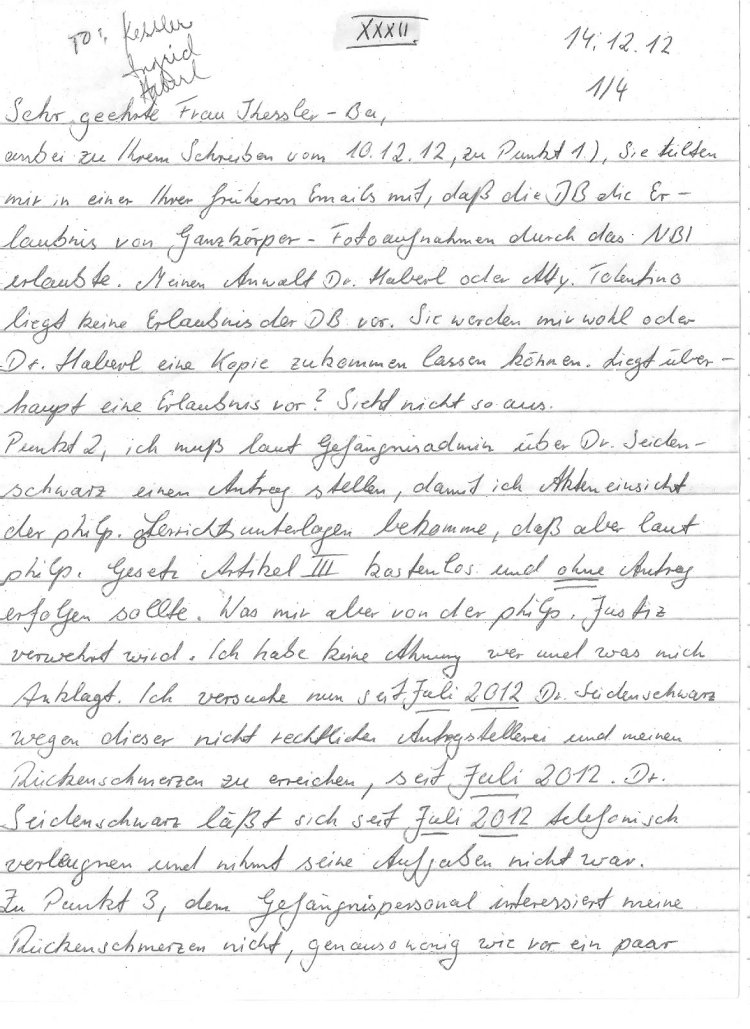 TO: Kessler
Ingrid
Haberl
XXXII.
14.12.12
1/4
Sehr geehrte Frau Khessler-Ba,
anbei zu Ihrem Schreiben vom 10.12.12, zu Punkt 1), Sie teilten
mir in einer Ihrer früheren Emails mit, daß die DB die Er-
laubnis von Ganzkörper-Fotoaufnahmen durch das NBI
erlaubte. Meinen Anwalt Dr. Haberl oder Atty. Tolentino
liegt keine Erlaubnis der DB vor. Sie werden mir wohl oder
Dr. Haberl eine Kopie zukommen lassen können. Liegt über-
haupt eine Erlaubnis vor? Sieht nicht so aus.
Punkt 2, ich muß laut Gefängnisadmin über Dr. Seiden-
schwarz einen Antrag stellen, damit ich Akteneinsicht
der philp. Gerichtsunterlagen bekomme, daß aber laut
philp. Gesetz Artikel III kostenlos und ohne Antrag
erfolgen sollte. Was mir aber von der philp. Justiz
verwehrt wird. Ich habe keine Ahnung wer und was mich
Anklagt. Ich versuche nun seit Juli 2012 Dr. Seidenschwarz
wegen dieser nicht rechtlichen Antragstellerei und meinen
Rückenschmerzen zu erreichen, seit Juli 2012. Dr.
Seidenschwarz läßt sich seit Juli 2012 telefonisch
verleugnen und nihmt seine Aufgaben nicht war.
Zu Punkt 3, dem Gefängnispersonal interessiert meine
Rückenschmerzen nicht, genausowenig wie vor ein paar